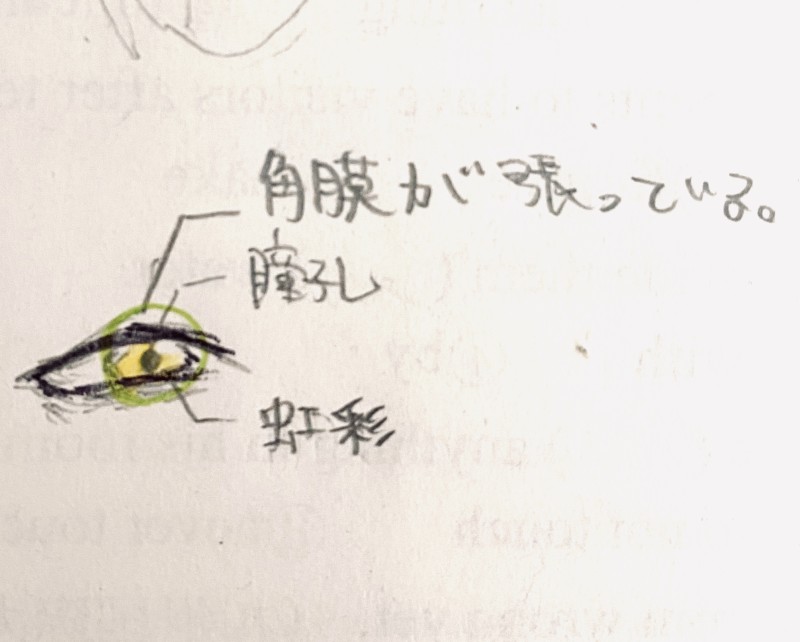 角膜が張っている。
瞳孔
虹彩